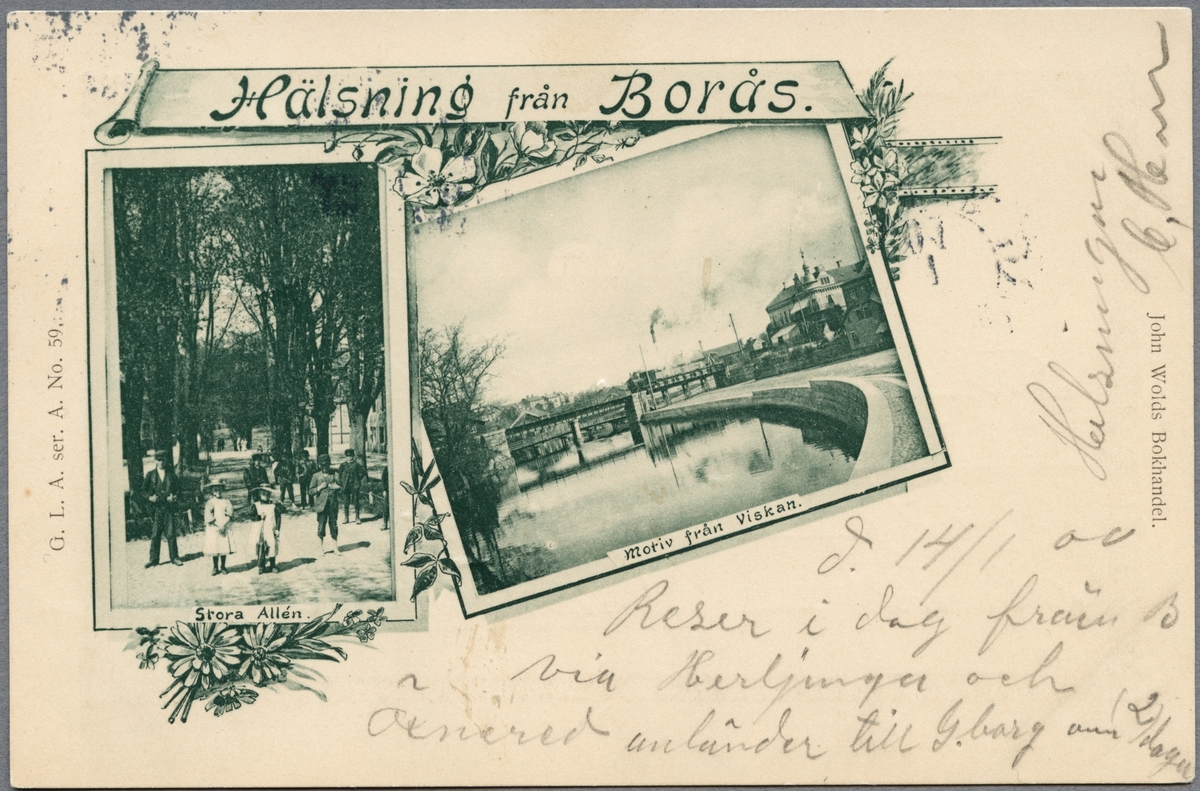 Hälsning från Borås.
Stora Allén.
Motiv från Viskan.
G. L. A. ser. A. No. 59.
John Wolds Bokhandel.
d. 14/1 00
Reser i dag från B
via Herljunga och
Öxnered anländer till G.borg om 2/dagar
Helsningar